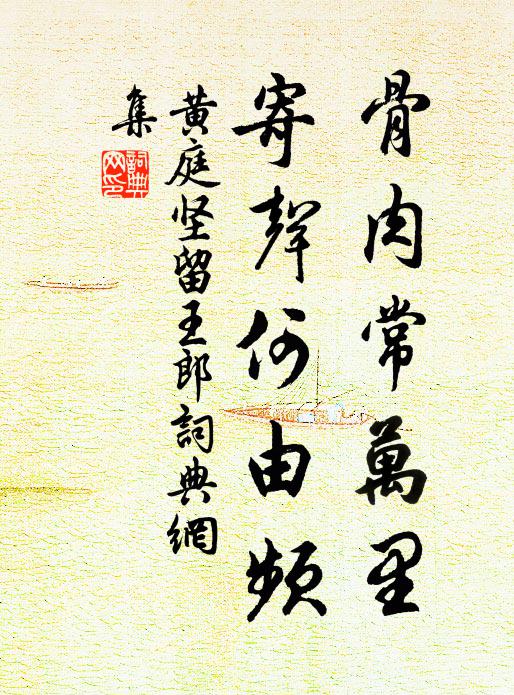 骨肉常萬里
寄聲何由頻
黄庭坚留王郎詞典網
集
詞典
网印